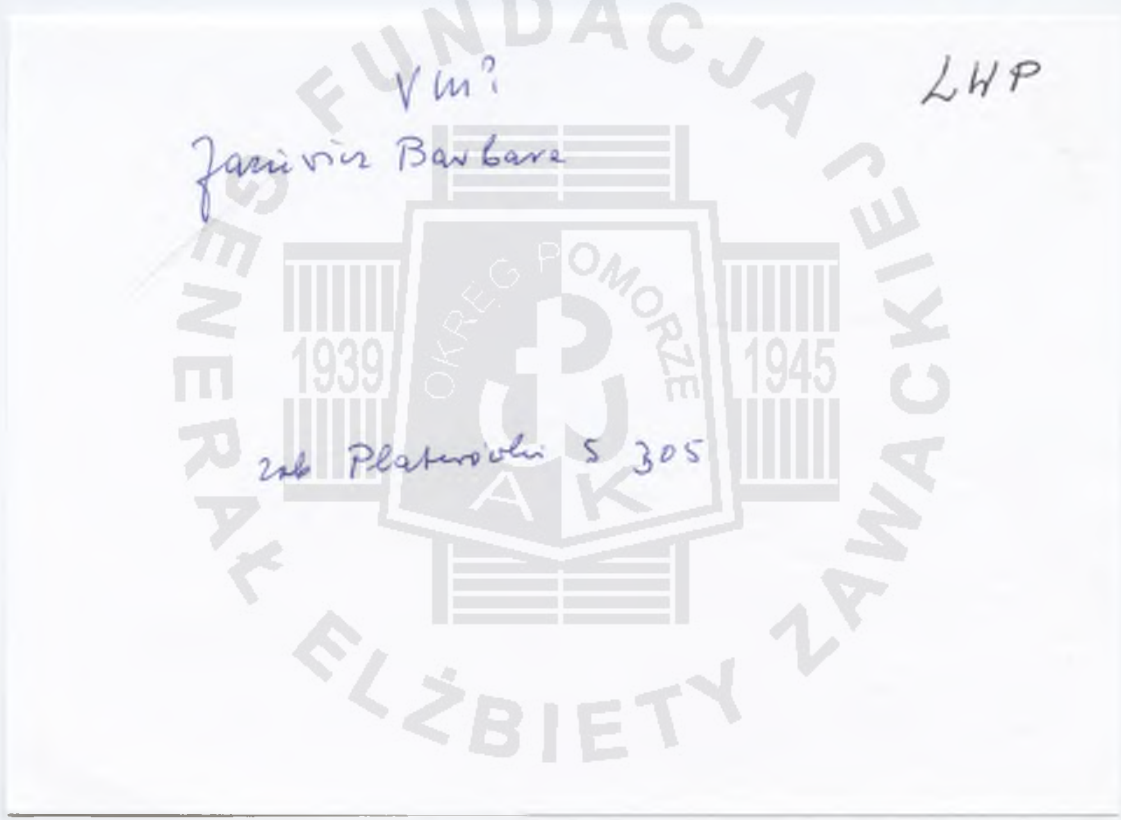 VM?
LWP
Janiewicz Barbara
zob Platerówki S 305
FUNDACJA GENERAŁ ELŻBIETY ZAWACKIEJ
OKRĘG POMORZE
1939 1945
AK